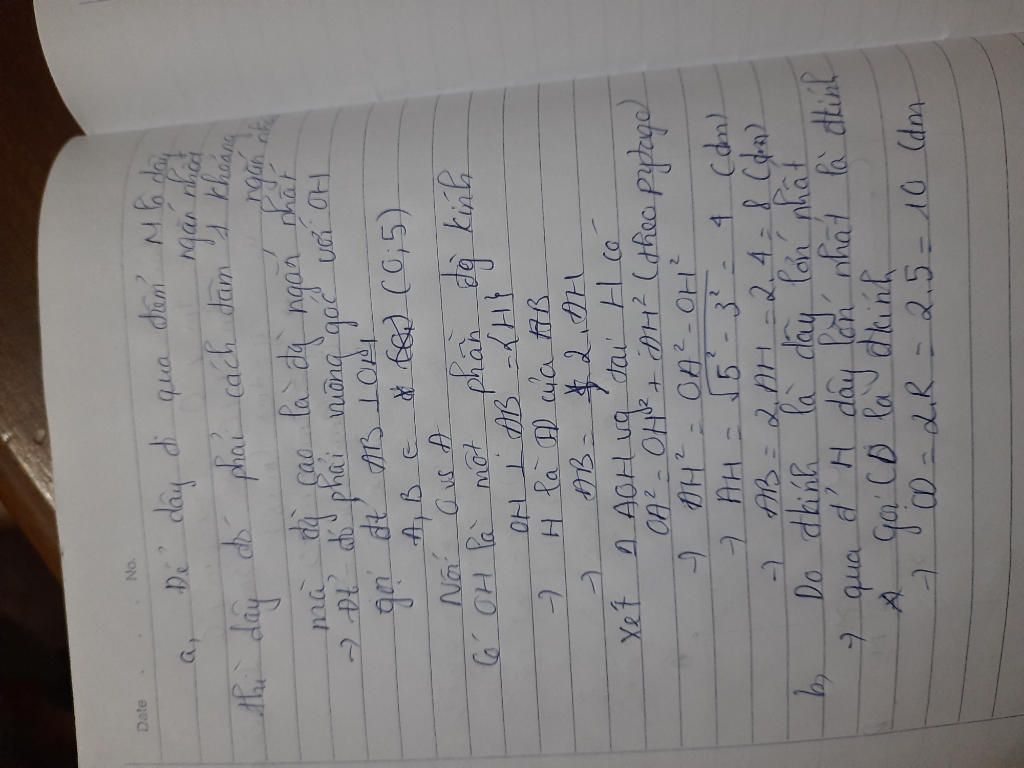 Date No.
a, Để dây đi qua điểm H là dây ngắn nhất
thì dây đó phải cách tâm 1 khoảng ngắn nhất
mà đg cao là đg ngắn nhất
→ Đt đó phải vuông góc với OH
gọi đt AB ⊥ OH
A, B ∈ (O, 5)
Nối O vs A
Có OH là một phần đg kính
OH ⊥ AB = {H}
→ H là TĐ của AB
→ AB = 2.AH
Xét Δ AOH vg tại H có
OA² = OH² + AH² (theo pytago)
→ AH² = OA² - OH²
→ AH = √5² - 3² = 4 (dm)
→ AB = 2AH = 2.4 = 8 (dm)
b, Do đkính là dây lớn nhất
→ qua đ' H dây lớn nhất là đkính
gọi CD là đkính
→ CD = 2R = 2.5 = 10 (dm